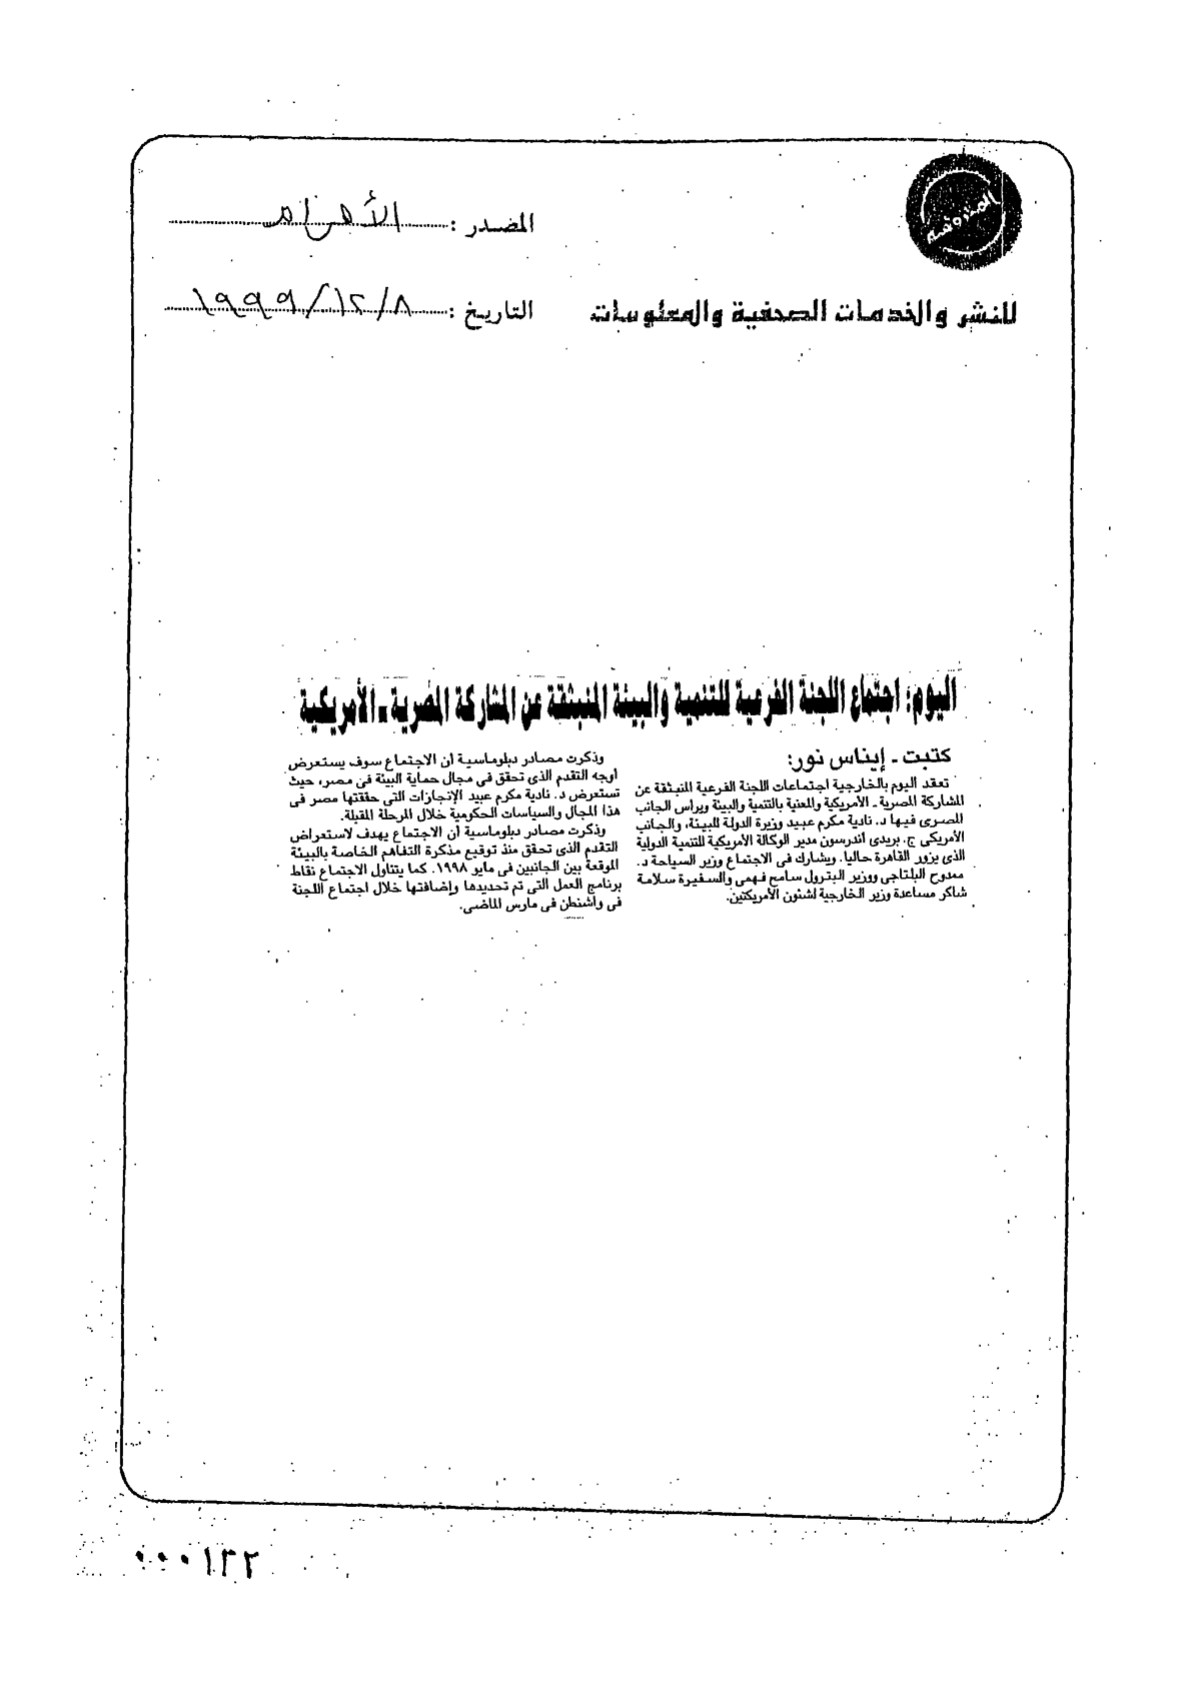 المحروسة
المصدر : الأهرام
للنشر والخدمات الصحفية والمعلومات
التاريخ : ٨/١٢/١٩٩٩
اليوم: اجتماع اللجنة الفرعية للتنمية والبيئة المنبثقة عن المشاركة المصرية ـ الأمريكية
كتبت ـ إيناس نور:
تعقد اليوم بالخارجية اجتماعات اللجنة الفرعية المنبثقة عن
المشاركة المصرية ـ الأمريكية والمعنية بالتنمية والبيئة ويرأس الجانب
المصرى فيها د. نادية مكرم عبيد وزيرة الدولة للبيئة، والجانب
الأمريكى ج. بريدى اندرسون مدير الوكالة الأمريكية للتنمية الدولية
الذى يزور القاهرة حاليا. ويشارك فى الاجتماع وزير السياحة د.
ممدوح البلتاجى ووزير البترول سامح فهمى والسفيرة سلامة
شاكر مساعدة وزير الخارجية لشئون الأمريكتين.
وذكرت مصادر دبلوماسية أن الاجتماع سوف يستعرض
أوجه التقدم الذى تحقق فى مجال حماية البيئة فى مصر، حيث
تستعرض د. نادية مكرم عبيد الإنجازات التى حققتها مصر فى
هذا المجال والسياسات الحكومية خلال المرحلة المقبلة.
وذكرت مصادر دبلوماسية أن الاجتماع يهدف لاستعراض
التقدم الذى تحقق منذ توقيع مذكرة التفاهم الخاصة بالبيئة
الموقعة بين الجانبين فى مايو ١٩٩٨. كما يتناول الاجتماع نقاط
برنامج العمل التى تم تحديدها وإضافتها خلال اجتماع اللجنة
فى واشنطن فى مارس الماضى.
٠٠٠١٣٢